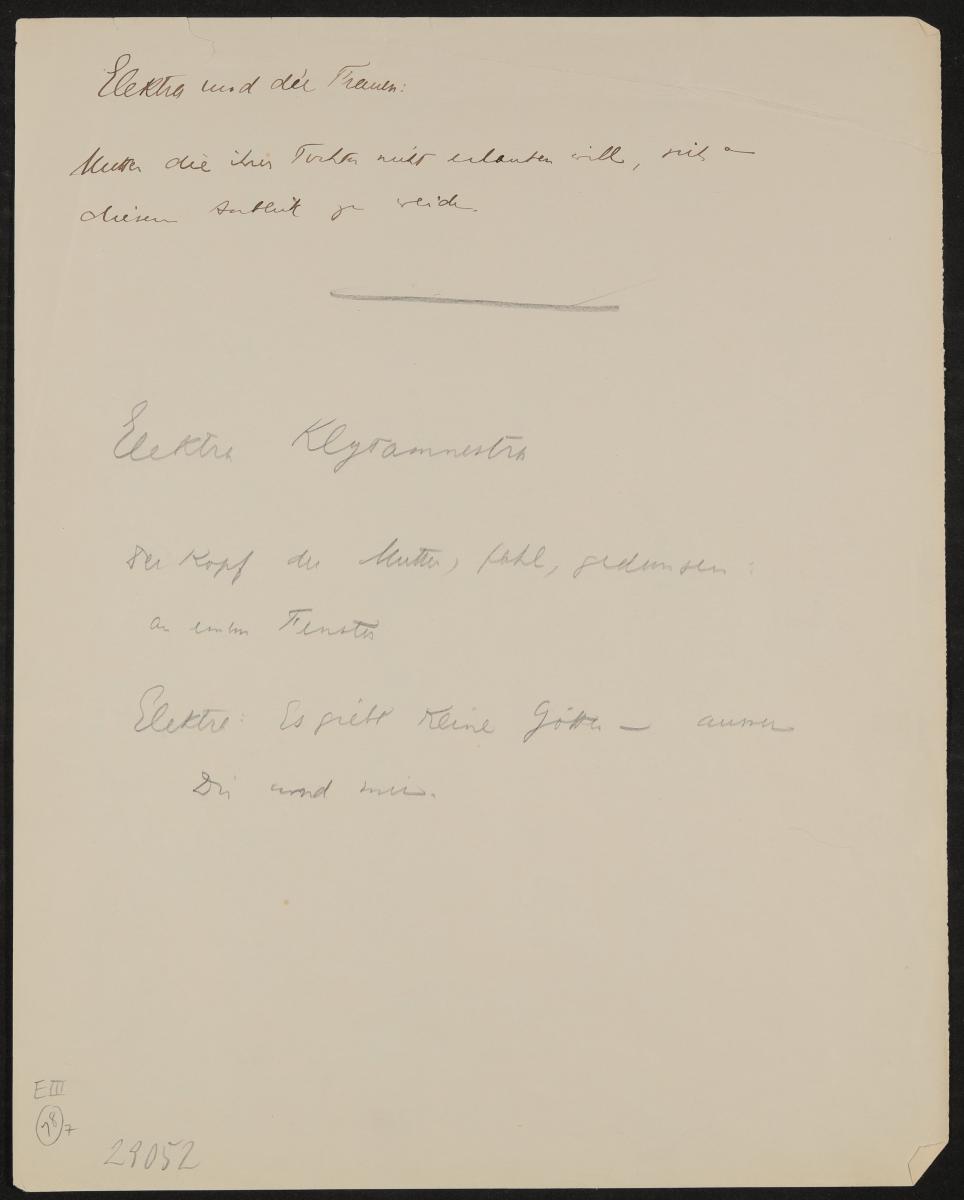 Elektra und die Frauen:
Mutter die ihrer Tochter nicht erlauben will, sich an
diesem Anblick zu weiden.
Elektra Klytämnestra
Der Kopf der Mutter, fahl, gedunsen:
an einem Fenster
Elektra: Es giebt keine Götter — ausser
Dir und mir.
E III
7
29052